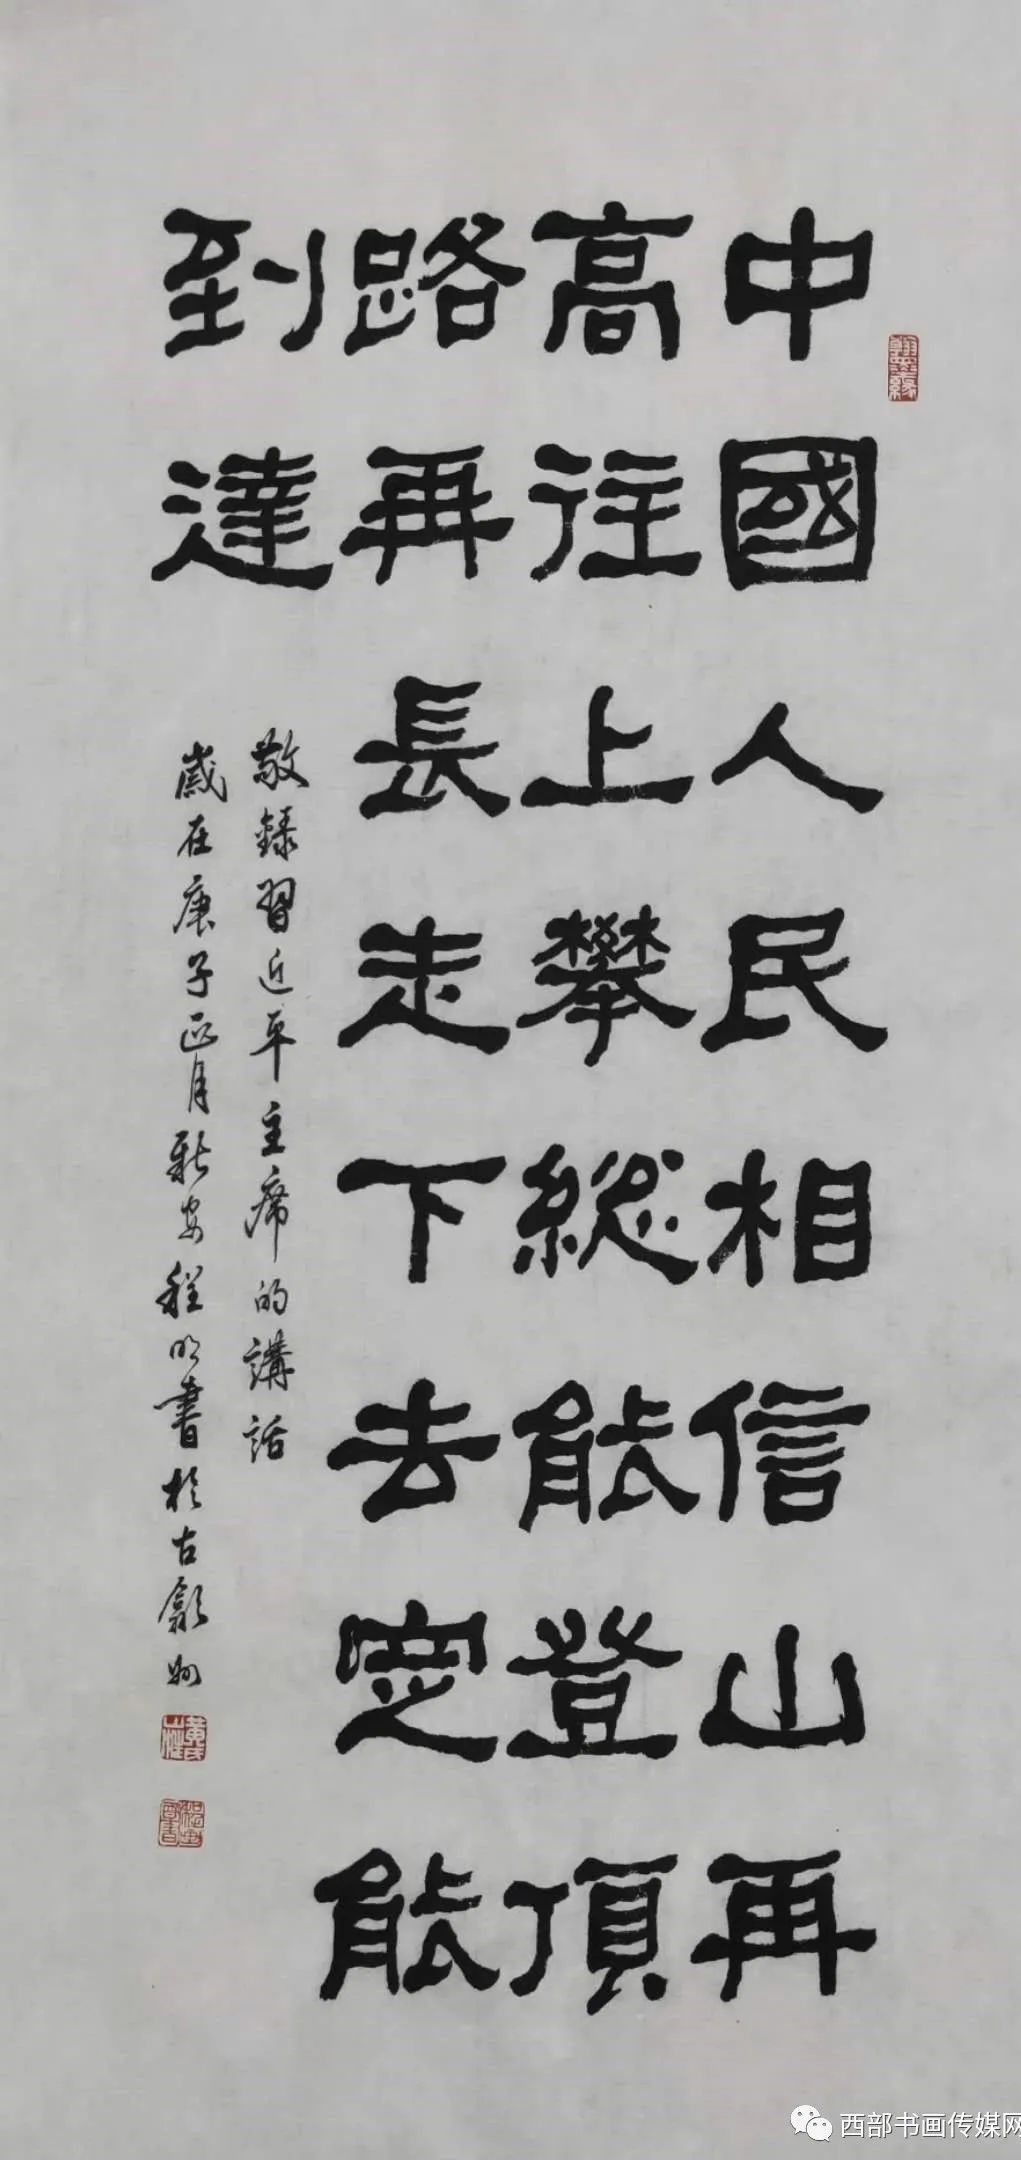 中國人民相信山再
高往上攀總能登頂
路再長走下去定能
到達
敬錄習近平主席的講話
歲在庚子正月新安程明書於古歙州
翰墨緣
西部书画传媒网